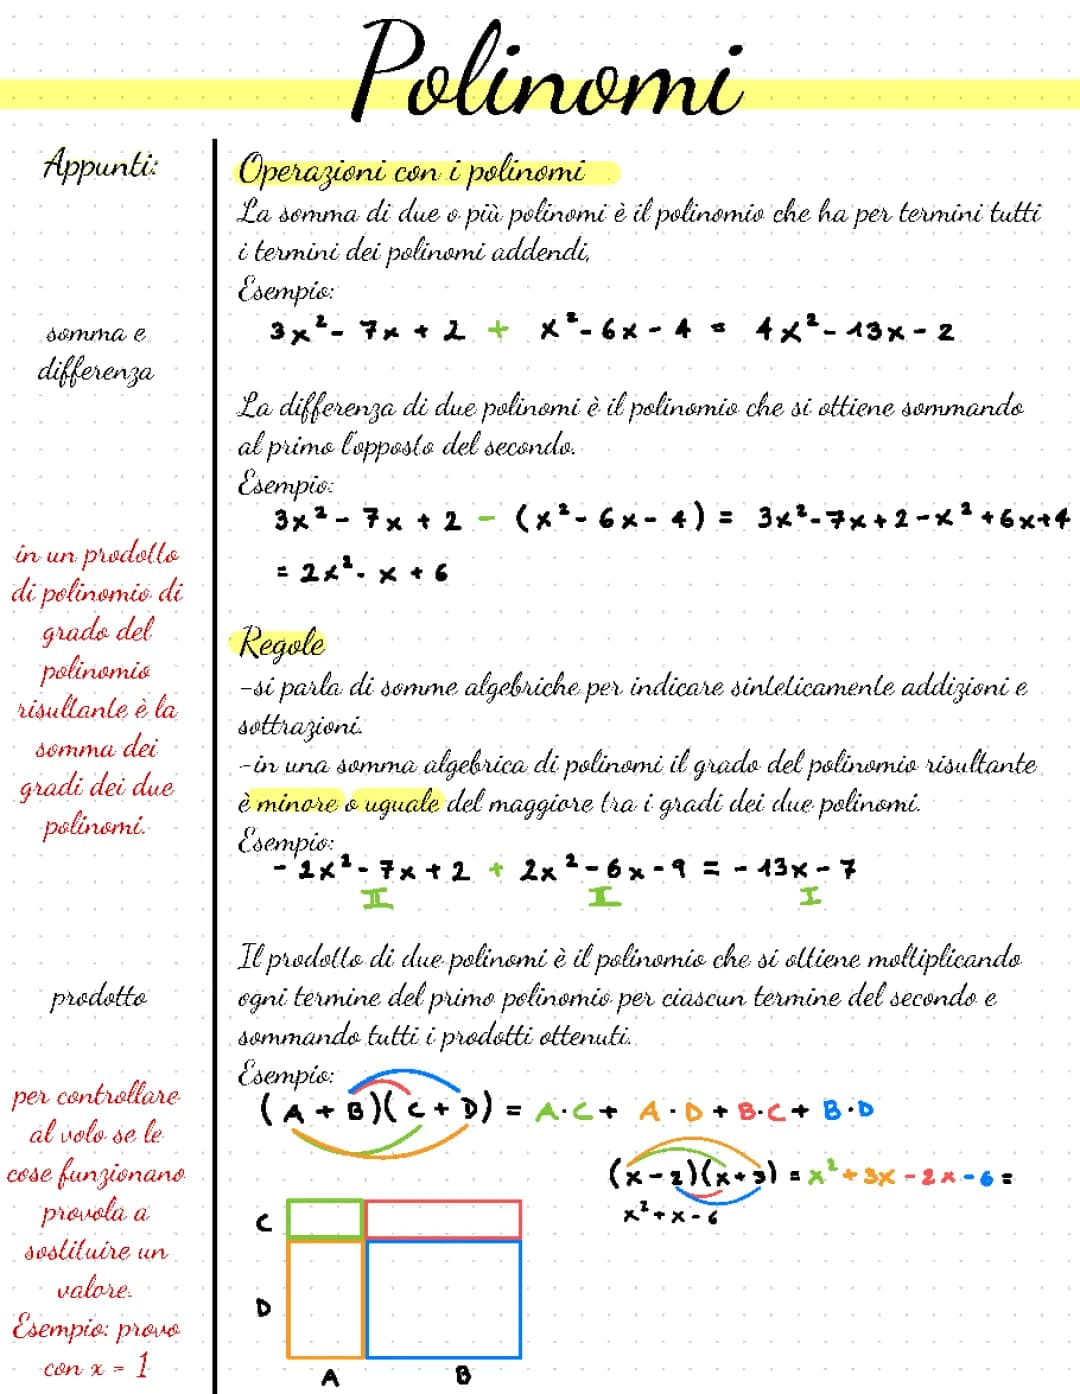 Polinomi
Appunti:
somma e
differenza
in un prodotto
di polinomio di
grado del
polinomio
risultante è la
somma dei
gradi dei due
polinomi.
prodotto
per controllare
al volo se le
cose funzionano
provola a
sostituire un
valore.
Esempio: provo
con x = 1
Operazioni con i polinomi
La somma di due o più polinomi è il polinomio che ha per termini tutti
i termini dei polinomi addendi,
Esempio:
3x² - 7x + 2 + x² - 6x - 4 = 4x² - 13x - 2
La differenza di due polinomi è il polinomio che si ottiene sommando
al primo l'opposto del secondo.
Esempio:
3x² - 7x + 2 - (x² - 6x - 4) = 3x² - 7x + 2 - x² + 6x + 4
= 2x² - x + 6
Regole
-si parla di somme algebriche per indicare sinteticamente addizioni e
sottrazioni.
-in una somma algebrica di polinomi il grado del polinomio risultante
è minore o uguale del maggiore tra i gradi dei due polinomi.
Esempio:
- 2x² - 7x + 2 + 2x² - 6x - 9 = - 13x - 7
II II I
Il prodotto di due polinomi è il polinomio che si ottiene moltiplicando
ogni termine del primo polinomio per ciascun termine del secondo e
sommando tutti i prodotti ottenuti.
Esempio:
(A + B)(C + D) = A·C + A·D + B·C + B·D
(x - 2)(x + 3) = x² + 3x - 2x - 6 =
x² + x - 6
C
D
A B